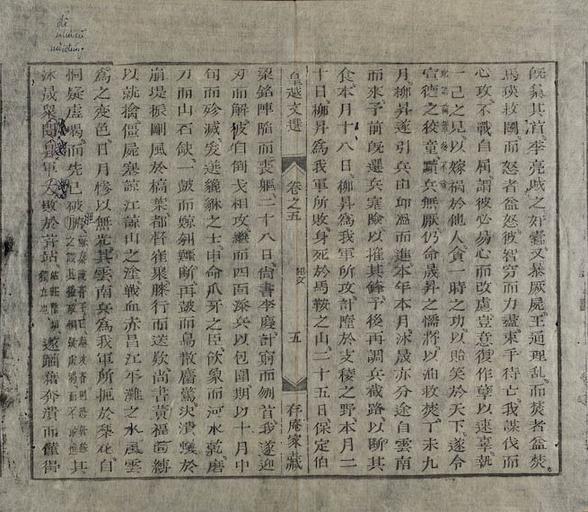 旣梟其首李亮賊之奸蠹又暴厥屍王通理乱而焚者益焚
馬瑛救闘而怒者益怒彼智窮而力盡束手待亡我謀伐而
心攻不戰自屈謂彼必易心而改慮豈意復作孽以速辜執
一己之見以嫁禍於他人貪一時之功以貽笑於天下遂令
宣德之狡童黷兵無厭仍命晟昇之懦將以油救焚丁未九
月柳昇遂引兵由邱溫而進本年本月沐晟亦分途自雲南
而來予前旣選兵塞險以摧其鋒予後再調兵截路以斷其
食本月十八日柳昇爲我軍所攻計墮於支稜之野本月二
十日柳昇爲我軍所敗身死於馬鞍之山二十五日保定伯
皇越文選 卷之五 五 存庵家藏
梁銘陣陷而喪軀二十八日尚書李慶計窮而刎首我遂迎
刃而解彼自倒戈相攻繼而四面添兵以包圍期以十月中
旬而殄滅爰選貔貅之士申命爪牙之臣飮象而河水乾磨
刀而山石缺一鼓而鯨刳鱷斷再鼓而鳥散麏驚決潰蟻於
崩堤振剛風於槁葉都督崔聚膝行而送欵尚書黃福面縛
以就擒僵屍塞諒江諒山之途戰血赤昌江平灘之水風雲
爲之変色日月慘以無光其雲南兵爲我軍所扼於梨花自
恫疑虛喝而先已破膽其
沐晟衆聞昇軍大敗於芹站遂躪藉奔潰而僅得